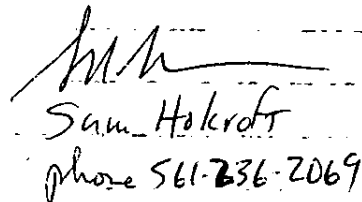 Sam Holcroft
phone 561-236-2069